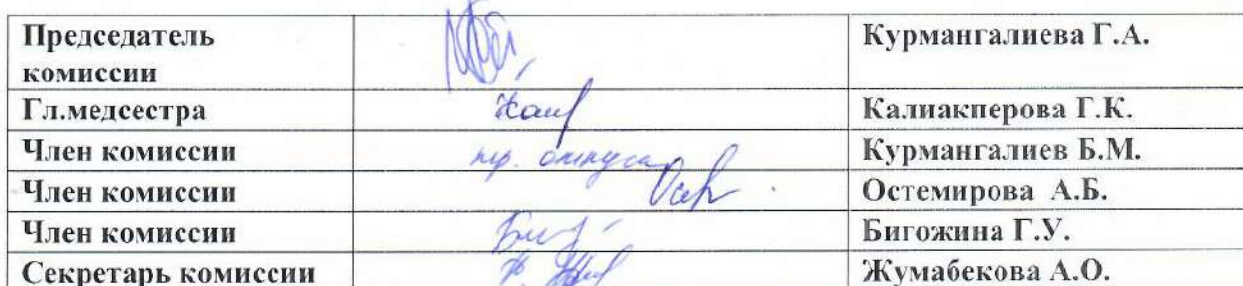 Председатель комиссии Курмангалиева Г.А.
Гл.медсестра Калиакперова Г.К.
Член комиссии Курмангалиев Б.М.
Член комиссии Остемирова А.Б.
Член комиссии Бигожина Г.У.
Секретарь комиссии Жумабекова А.О.